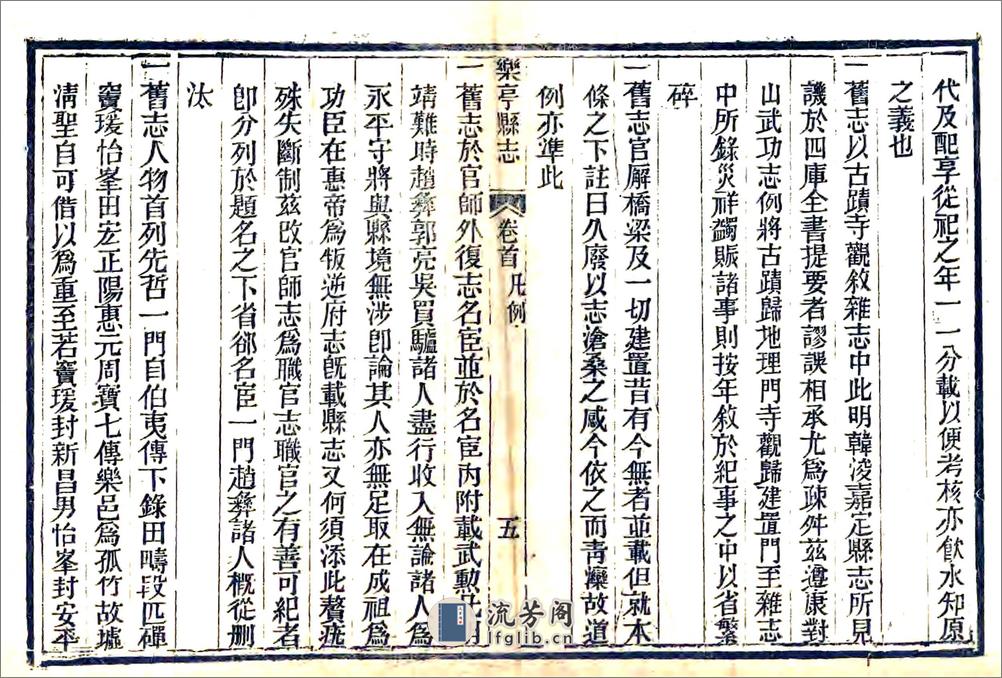 代及配享從祀之年一一分載以便考核亦飲水知原
之義也
一舊志以古蹟寺觀敘雜志中此明韓浚嘉定縣志所見
譏於四庫全書提要者謬誤相承尤為疎舛茲遵康對
山武功志例將古蹟歸地理門寺觀歸建置門至雜志
中所錄災祥蠲賑諸事則按年敘於紀事之中以省繁
碎
一舊志官廨橋梁及一切建置昔有今無者並載但就本
條之下註曰久廢以志滄桑之感今依之而青灤故道
例亦準此
樂亭縣志 卷首 凡例 五
一舊志於官師外復志名宦並於名宦內附載武勲凡
靖難時趙彝郭亮吳買驢諸人盡行收入無論諸人為
永平守將與縣境無涉卽論其人亦無足取在成祖為
功臣在惠帝為叛逆府志旣載縣志又何須添此贅疣
殊失斷制茲改官師志為職官志職官之有善可紀者
卽分列於題名之下省卻名宦一門趙彝諸人概從删
汰
一舊志人物首列先哲一門自伯夷傳下錄田疇段匹磾
竇瑗怡峯田宏正陽惠元周寶七傳樂邑爲孤竹故墟
淸聖自可借以爲重至若竇瑗封新昌男怡峯封安平
流芳阁
lfglib.cn